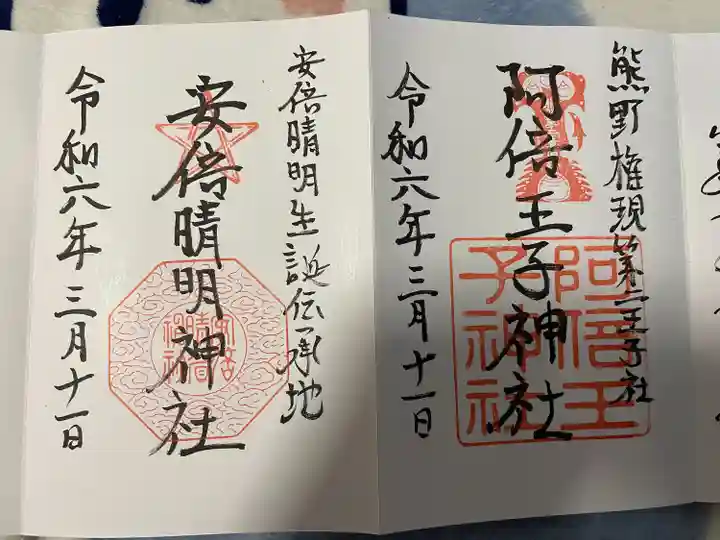 熊野権現第二王子社
阿倍王子神社
阿倍王
子神社
令和六年三月十一日
安倍晴明生誕伝承地
安倍晴明神社
令和六年三月十一日